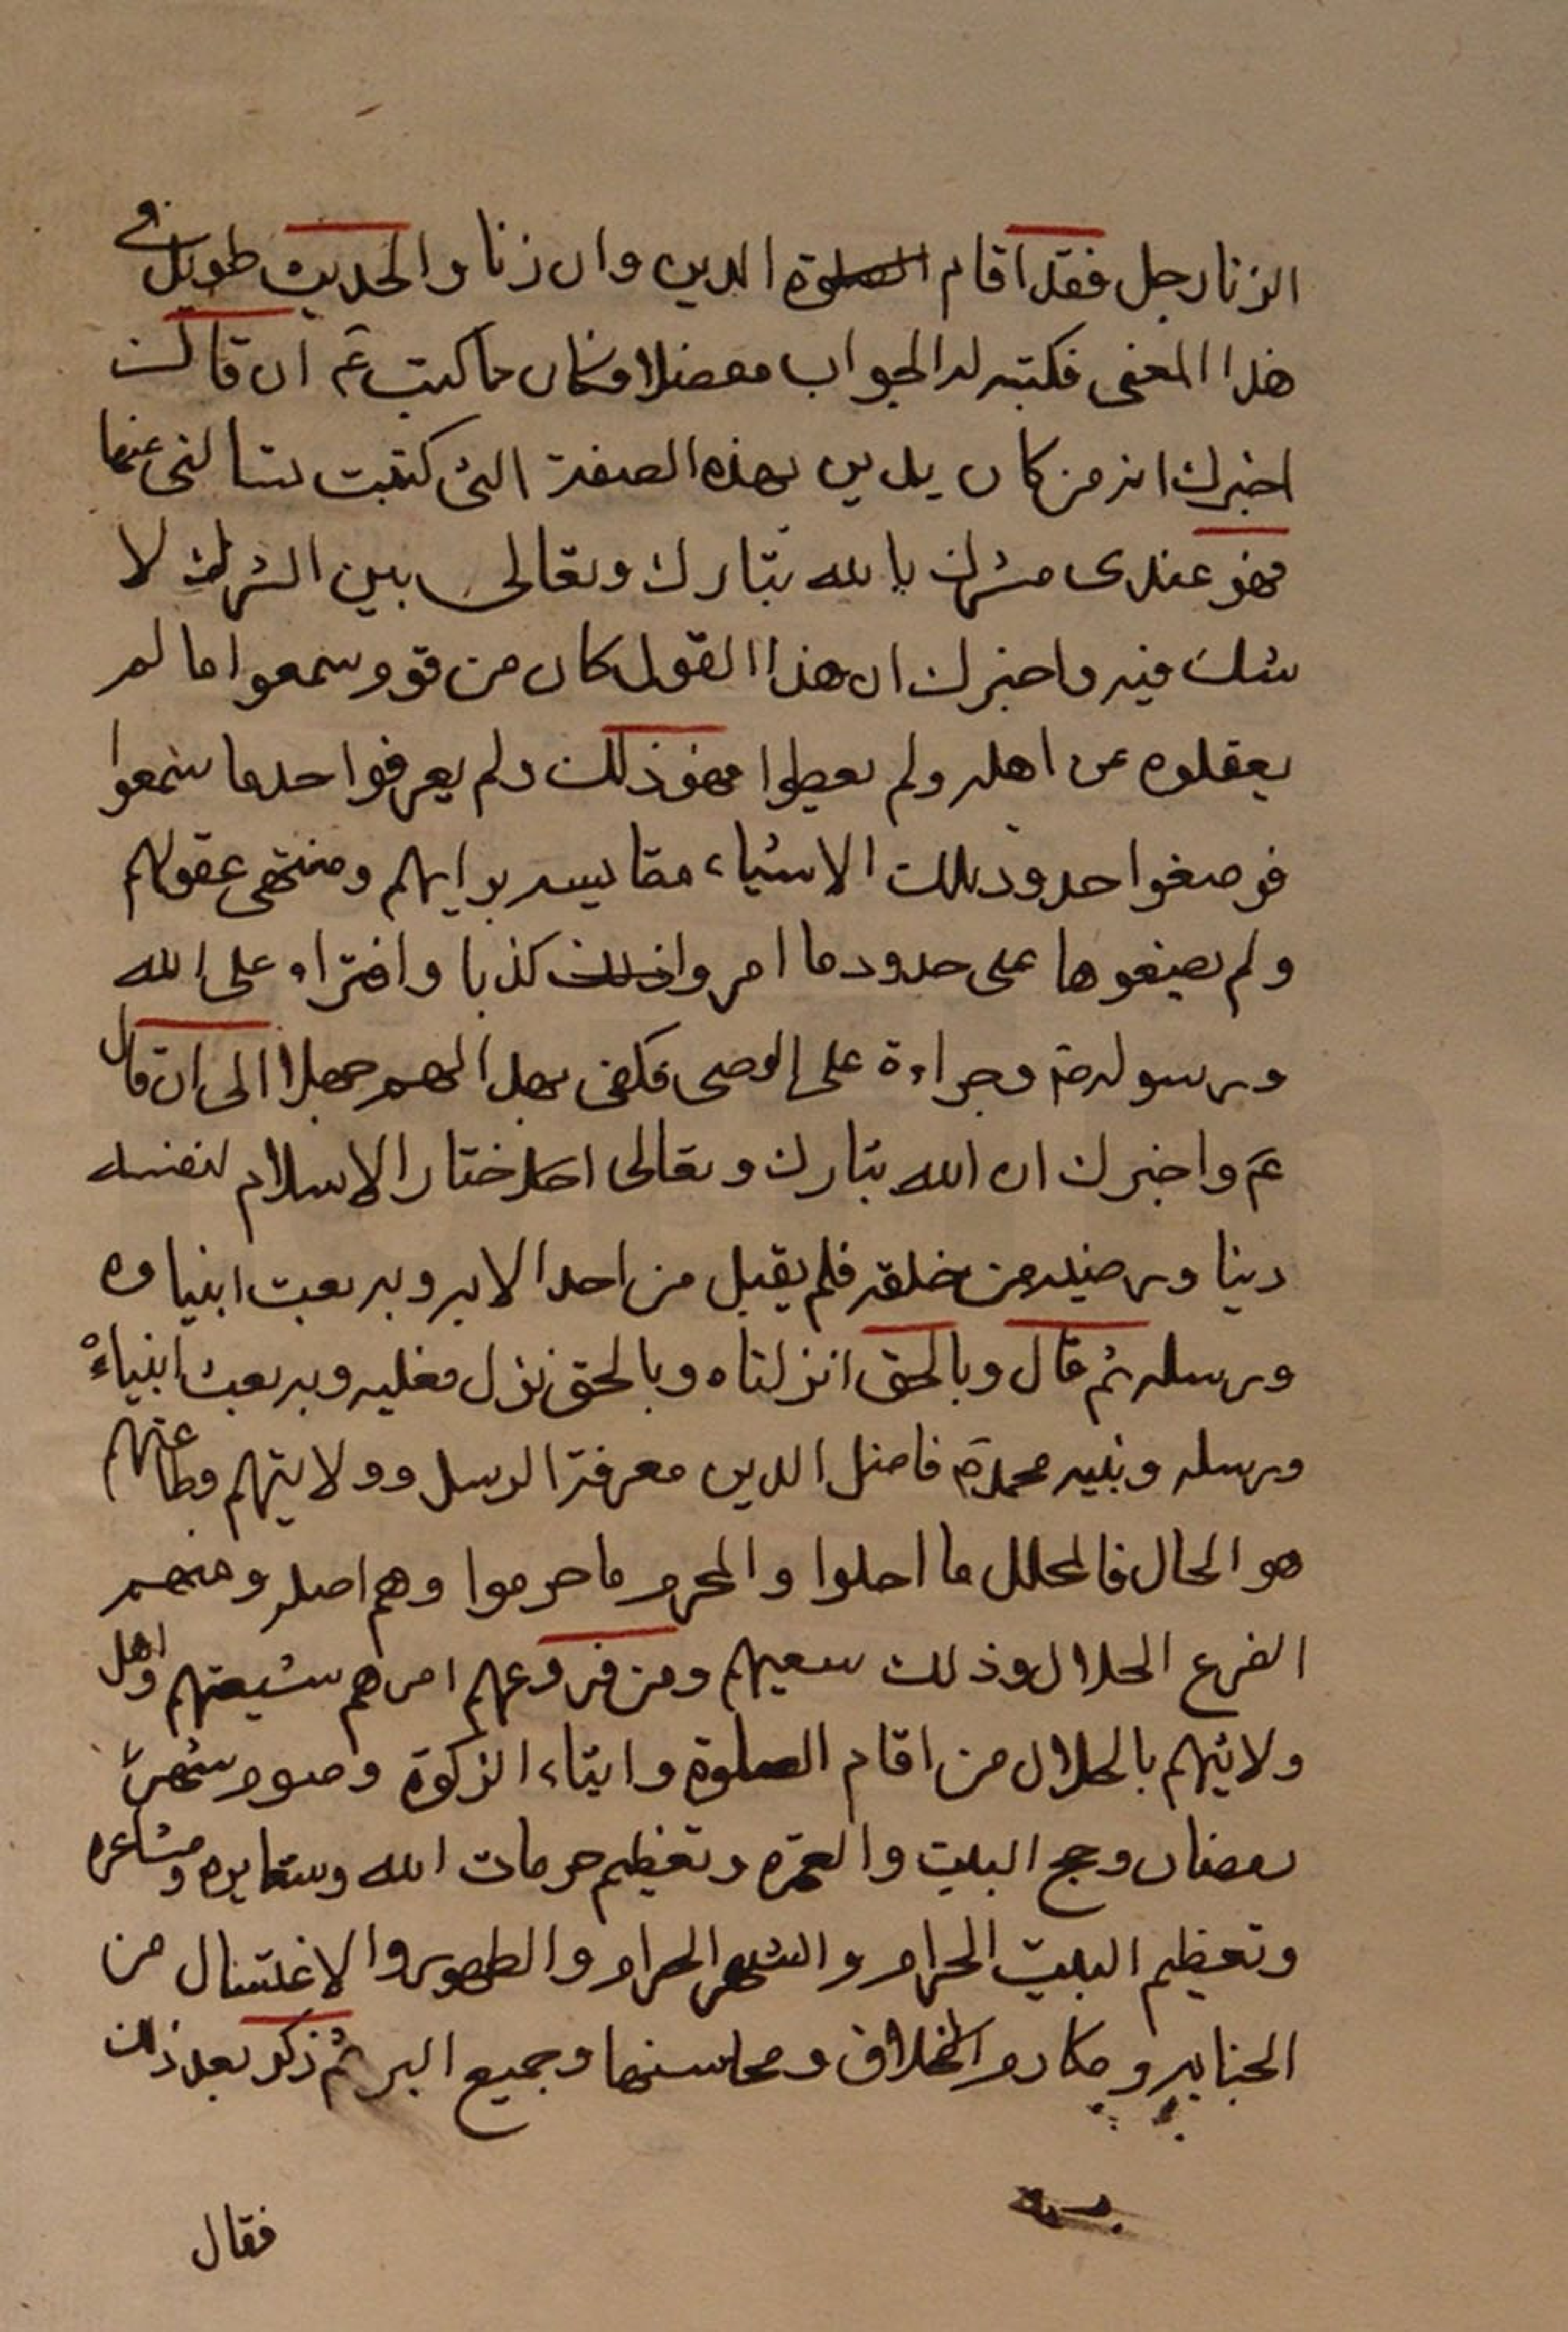 الزنا رجل فقد اقام الصلوة الدين وان زنا والحديث طويل في
هذا المعنى فكتب له الجواب مفصلا وكان ما كتب عم ان قال
اخبرك انه من كان يدين بهذه الصفة التي كتبت تسالني عنها
فهو عندى مشرك بالله تبارك وتعالى بين الشرك لا
شك فيه واخبرك ان هذا القول كان من قوم سمعوا ما لم
يعقلوه عن اهله ولم يعطوا فهم ذلك ولم يعرفوا حد ما سمعوا
فوضعوا حدود تلك الاشياء مقايسه برايهم ومنتهى عقولهم
ولم يضعوها على حدود ما امروا ذلك كذبا وافتراء على الله
ورسوله ص وجراءة على المعاصى فكفى بهذا لهم جهلا الى ان قال
عم واخبرك ان الله تبارك وتعالى اختار الاسلام لنفسه
دينا ورضيه من خلقه فلم يقبل من احد الا به وبه بعث انبياوه
ورسله ثم قال وبالحق انزلناه وبالحق نزل فعليه وبه بعث انبياءه
ورسله ونبيه محمد ص فاضل الدين معرفة الرسل وولايتهم وطاعتهم
هو الحال فالمحلل ما احلوا والمحرم ما حرموا وهم اصله ومنهم
الفرع الحلال وذلك سعيهم ومن فروعهم امرهم شيعتهم واهل
ولايتهم بالحلال من اقام الصلوة وايتاء الزكوة وصوم شهر
رمضان وحج البيت والعمره وتعظيم حرمات الله وشعايره ومشاعره
وتعظيم البيت الحرام والشهر الحرام والطهور والاغتسال من
الجنابه ومكارم الاخلاق ومحاسنها وجميع البر ثم ذكر بعد ذلك
فقال